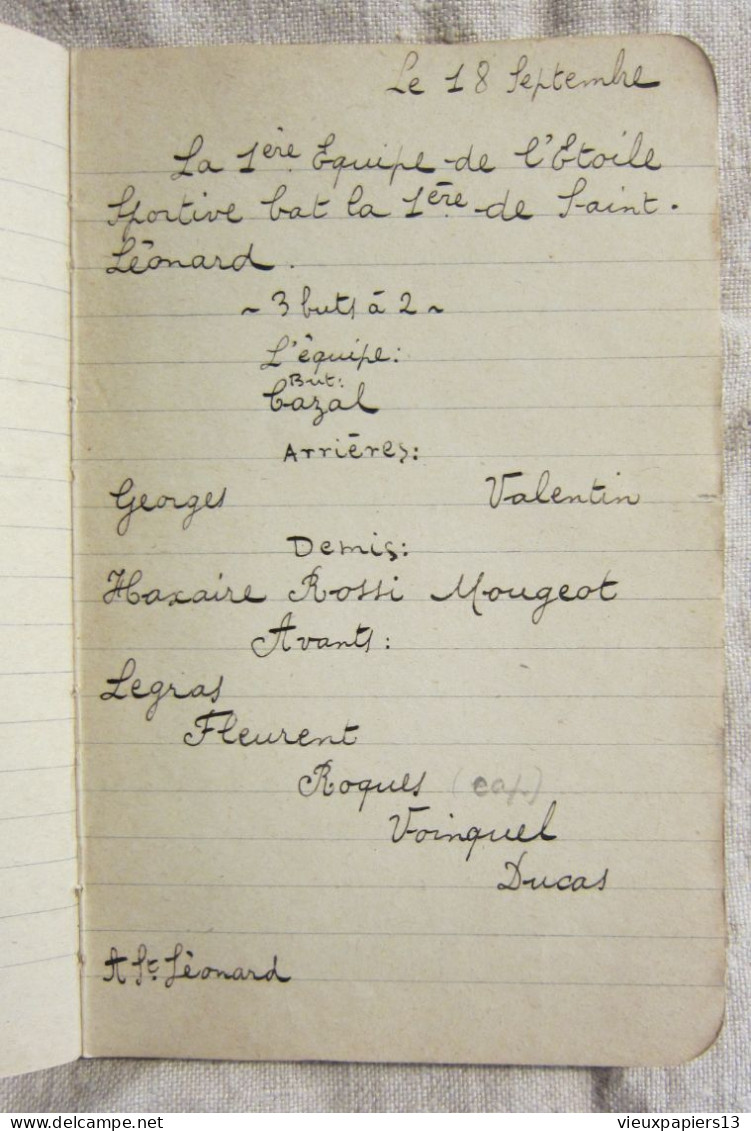 Le 18 Septembre
La 1ère Equipe de l'Etoile
Sportive bat la 1ère de Saint-
Léonard.
~ 3 buts à 2 ~
L'équipe:
But:
Cazal
Arrières:
Georges Valentin
Demis:
Haxaire Rossi Mougeot
Avants:
Legras
Fleurent
Roques (cap.)
Voinquel
Ducas
A St. Léonard
delcampe.net
vieuxpapiers13